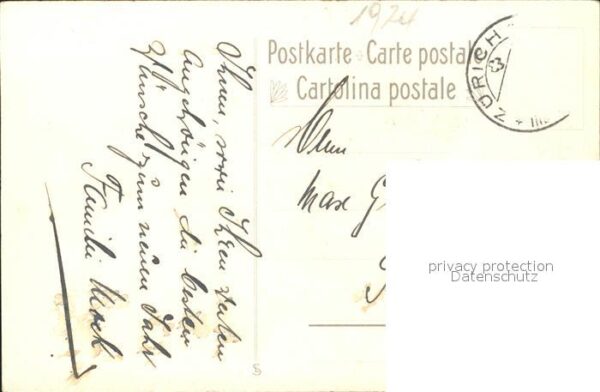 1924
Postkarte - Carte postal
Cartolina postale
ZÜRICH
Ihnen, sowie Ihren werten
Angehörigen die besten
Wünsche zum neuen Jahr
Familie
Herrn
Max G
privacy protection
Datenschutz